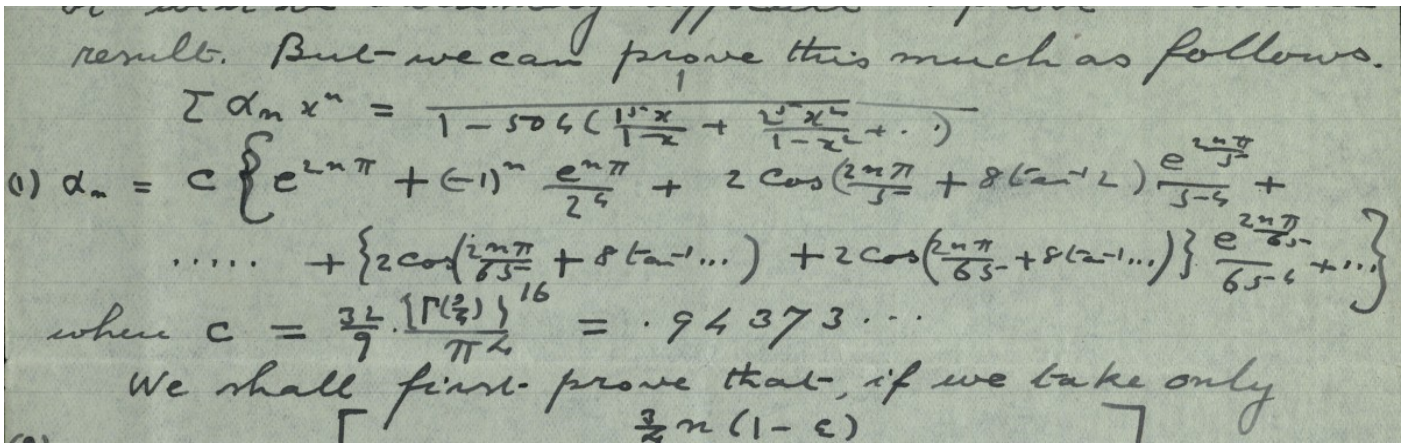 result. But we can prove this much as follows.
Σ αₙ xⁿ = 1 / (1 − 504 (1⁵x/(1−x) + 2⁵x²/(1−x²) + ..))
(1) αₙ = c { e^{2nπ} + (−1)ⁿ e^{nπ}/2⁴ + 2 cos(2nπ/5 + 8 tan⁻¹ 2) e^{2nπ/5}/5⁴ +
..... + {2 cos(2nπ/65 + 8 tan⁻¹ ...) + 2 cos(2nπ/65 + 8 tan⁻¹ ...)} e^{2nπ/65}/65⁴ + ... }
where c = 32/9 · {Γ(3/4)}¹⁶/π⁴ = .94373...
We shall first prove that, if we take only
[ 3/2 n (1 − ε) ]